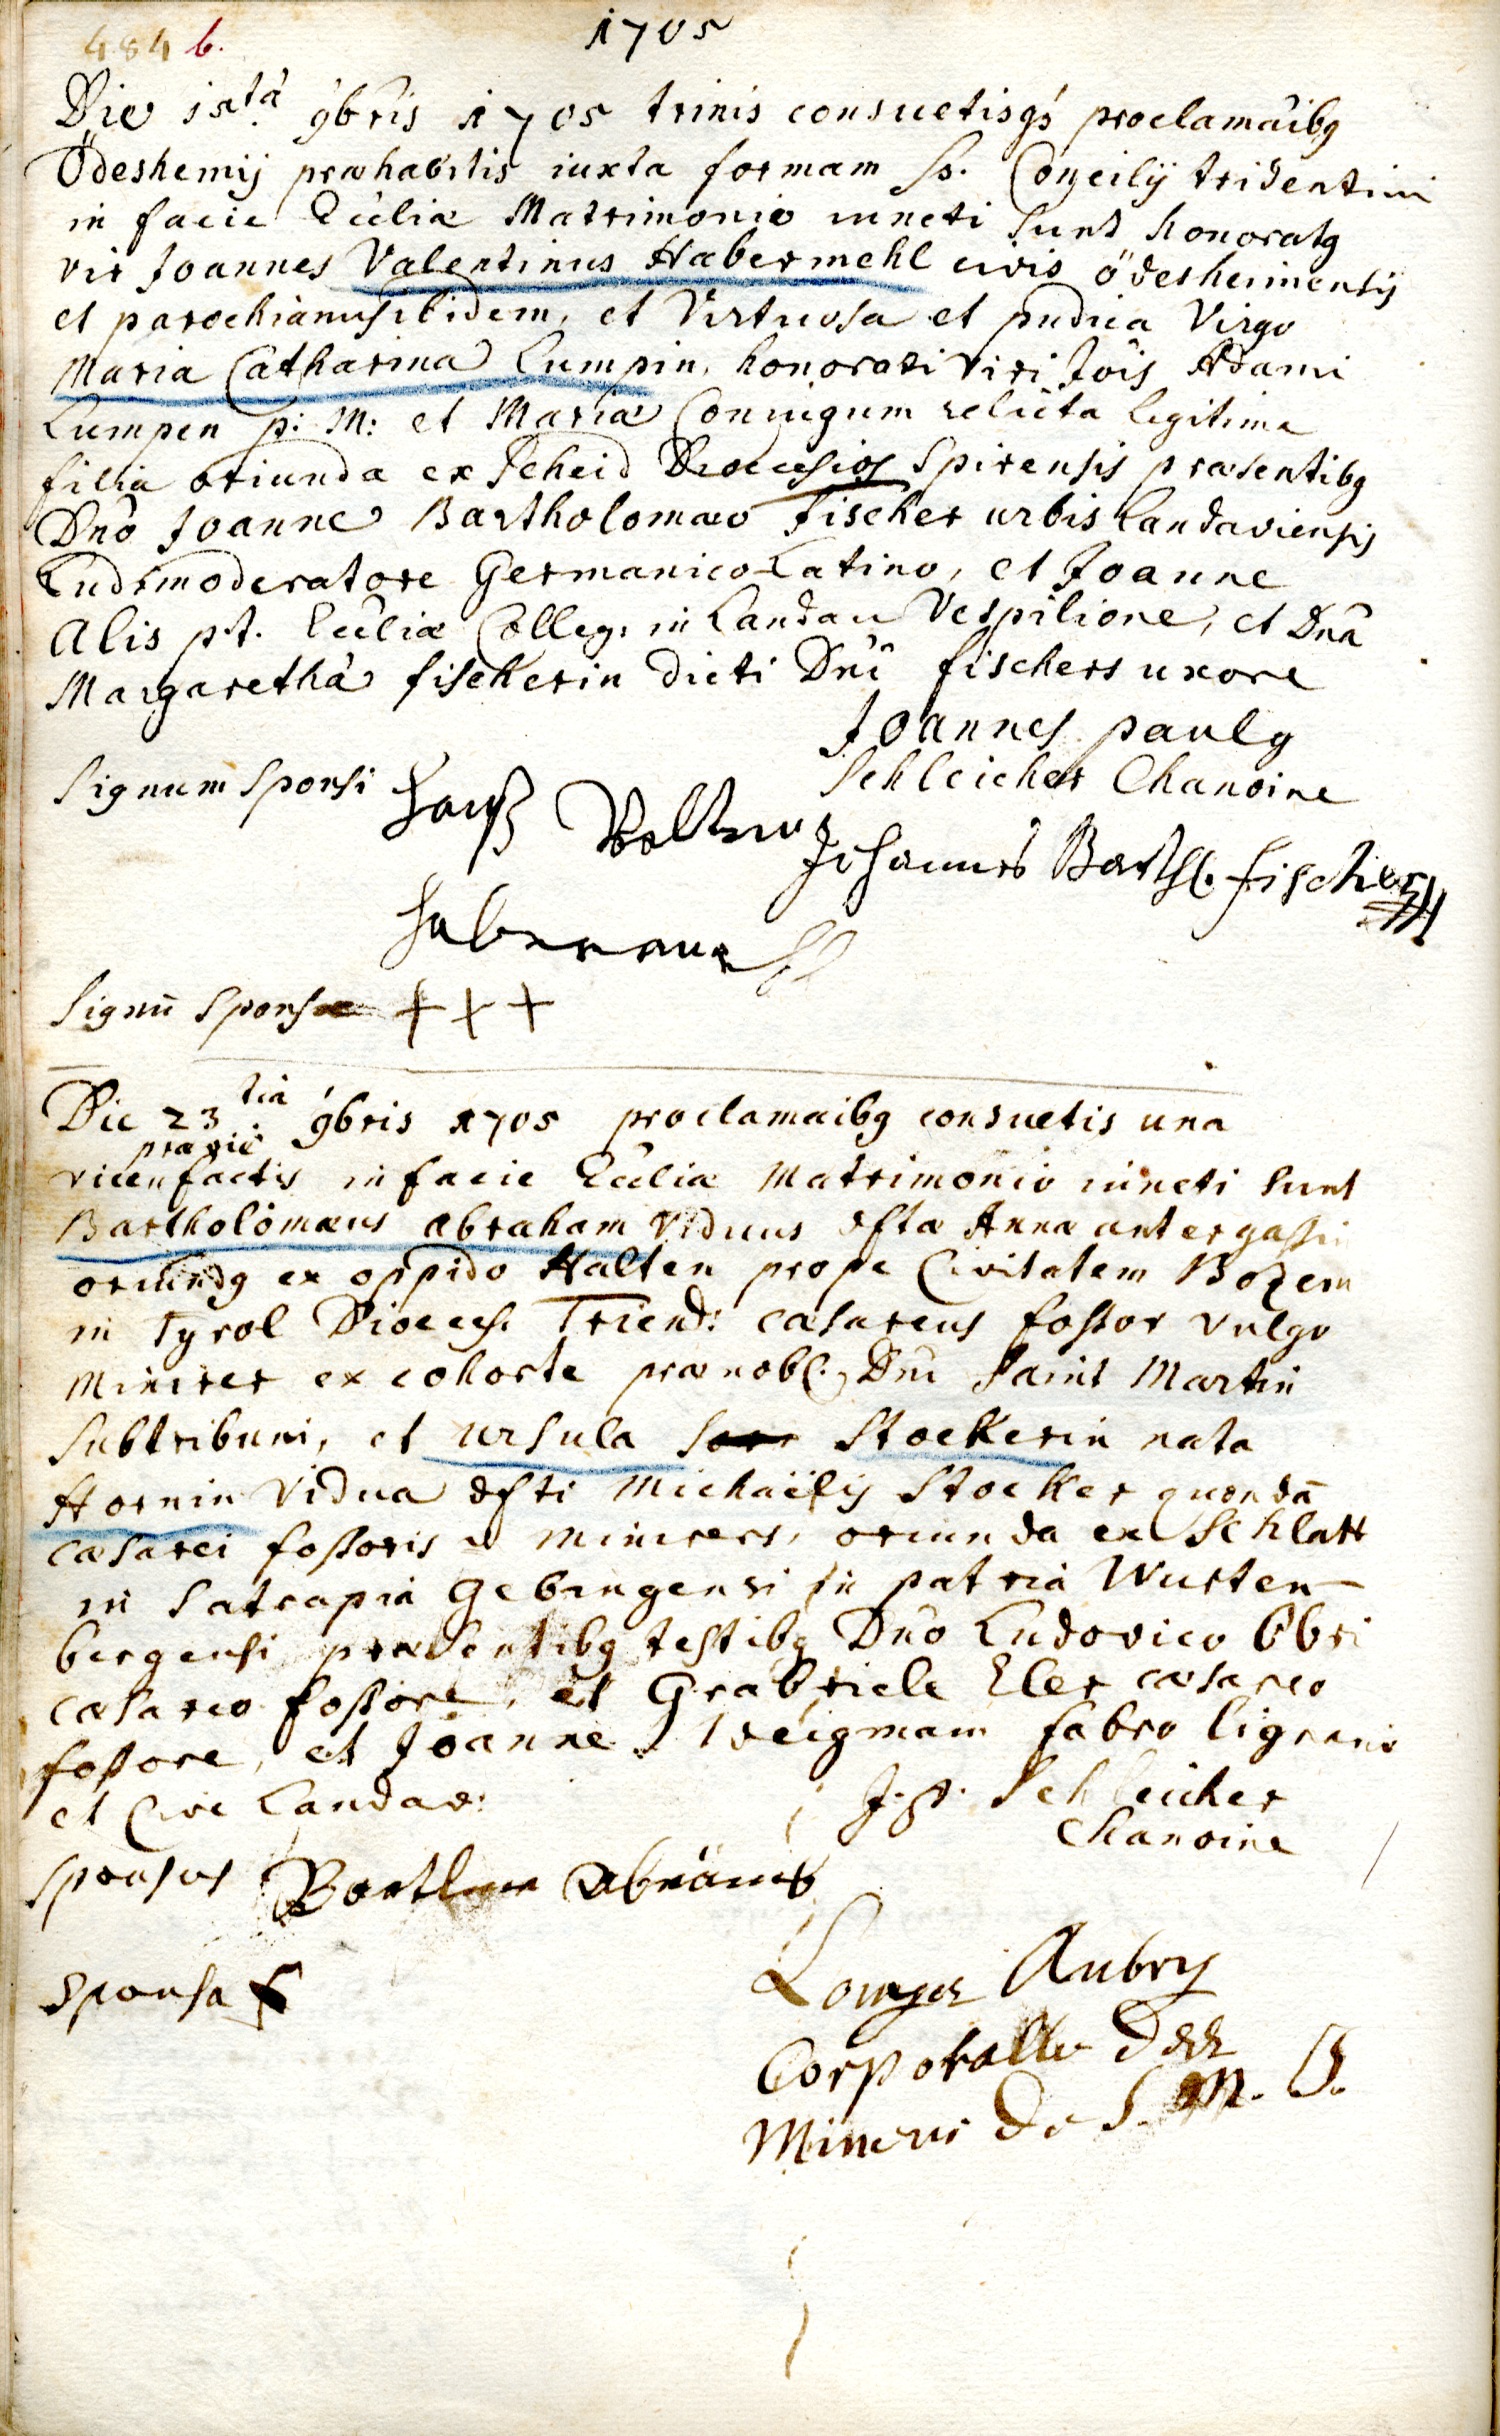 484 b.
1705
Die 15tâ 9bris 1705 trinis consuetisqs proclamâibg
Ödeshemij præhabitis iuxta formam Ss. Concilij tridentini
in facie Eccliæ Matrimonio iuncti sunt honoratg
vir Joannes Valentinus Habermehl civis ödesheimensis
et parochianus ibidem, et Virtuosa et pudica Virgo
Maria Catharina Lumpin, honorati viri Jois Adami
Lumpen p: M: et Mariæ Coniugum relicta legitima
filia oriunda ex Scheid Diœcesios Spirensis præsentibg
Dnô Joanne Bartholomæo Fischer urbis Landaviensis
Ludimoderatore Germanico-Latino, et Joanne
Alis p.t. Eccliæ Colleg: in Landau Vespilione, et Dnâ
Margarethâ fischerin dicti Dni fischers uxore
Joannes paulg
Schleicher Chanoine
Signum Sponsi Hanß
Johannes Barthl. Fischer
Signū Sponsæ + + +
Die 23tia 9bris 1705 proclamaibg consuetis una
prævie
vice factis in facie Eccliæ Matrimonio iuncti sunt
Bartholomæus abraham Viduus dftæ Annæ antergassin
oriundg ex oppido Halten prope Civitatem Bozem
in Tyrol Dioeces: Trient: cæsareus fossor vulgo
Minirer ex cohorte prænobl. Dni Saint Martin
Subtribuni, et ursula Stockerin nata
Hornin Vidua dfti Michaëlis Stocker quondā
cæsarei fossoris Minirers, oriunda ex Schlatt
in Satrapia Gebingensi in patria Wurten-
bergensi præsentibg testibg Dnô Ludovico Obri
cæsareo fossore, et Grabriele Eler cæsareo
fossore, et Joanne Weigmam fabro lignario
et Cive Landav:
J. P. Schleicher
Chanoine
Sponsus
Aubry
Sponsa +
Corporalle
Mineur de S. M. J.